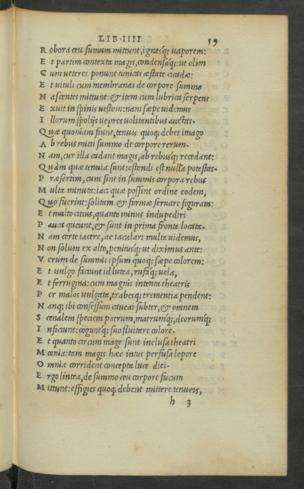 LIB·IIII    59
R obora ceu fumum mittunt, ignesq; uaporem:
E t partim contexta magis, condensaq; ut olim
C um ueteres ponunt tunicas æstate cicadæ:
E t uituli cum membranas de corpore summo
N ascentes mittunt: & item cum lubrica serpens
E xuit in spinis uestem: nam sæpe uidemus
I llorum spolijs uepres uolitantibus auctas.
Q uæ quoniam fiunt, tenuis quoq; debet imago
A b rebus mitti summo de corpore rerum.
N am, cur illa cadant magis, ab rebusq; recedant:
Q uàm quæ tenuia sunt: ostendi est nulla potestas.
P ræsertim, cum sint in summis corpora rebus
M ulta minuta: iaci quæ possint ordine eodem,
Q uo fuerint: solitem & formæ seruare figuram:
E t multo citius, quanto minus indupediri
P auca queunt, & sunt in prima fronte locata.
N am certe iacere, ac iaculari multa uidemus,
N on solum ex alto, penitusq; ut diximus ante:
V erum de summis ipsum quoq; sæpe colorem:
E t uulgo faciunt id lutea, rufaq; uela,
E t ferrugina: cum magnis intenta theatris
P er malos uulgata, trabesq; trementia pendent:
N anq; ibi consessum caueai subter, & omnem
S cenalem speciem patrum, matrumq; deorumq;
I nficiunt: coguntq; suo fluitere colore.
E t quanto circum mage sunt inclusa theatri
M œnia: tam magis hæc intus perfusa lepore
O mnia corrident correpta luce diei.
E rgo lintea, de summo ceu corpore fucum
M ittunt: effigies quoq; debent mittere tenueis,
h 3